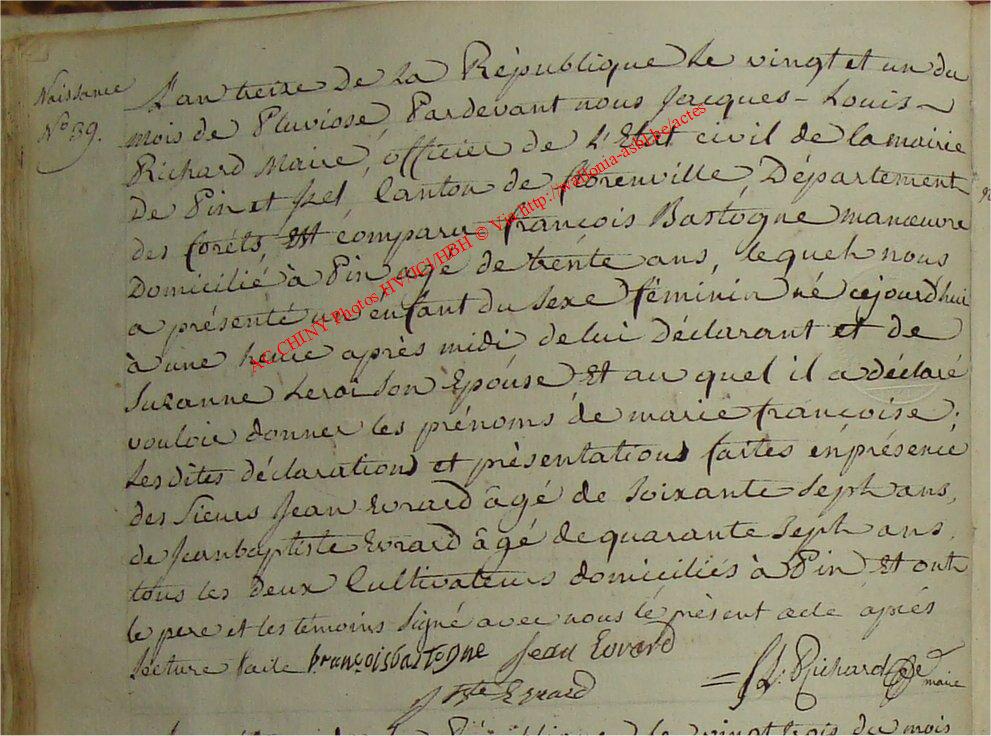 Naissance
N° 39.
L'an treize de la République le vingt et un du
mois de Pluviose, Pardevant nous Jacques-Louis-
Richard Maire, officier de L'Etat civil de la mairie
De Pin et Izel, Canton de florenville, Département
des forêts, Est comparu françois Bastogne manœuvre
Domicilié à Pin agé de trente ans, lequel nous
a présenté un enfant du sexe féminin né cejourdhui
à une heure après midi de lui Déclarant et de
Suzanne Leroi son Epouse Et au quel il a déclaré
vouloir donner les prénoms de marie françoise.
Lesdites déclaration et présentation faites en présence
des Sieurs Jean Evrard âgé de soixante sept ans,
de Jeanbaptiste Evrard âgé de quarante sept ans,
tous les deux Cultivateurs domiciliés à Pin Et ont
le pere et les témoins signé avec nous le présent acte après
lecture faite françois bastogne Jean Evrard
J Bte Evrard
J L. Richard maire
AC CHINY Photos HV/ICI/HBH © Via http://wallonia-asbl.be/actes
le vingt trois du mois